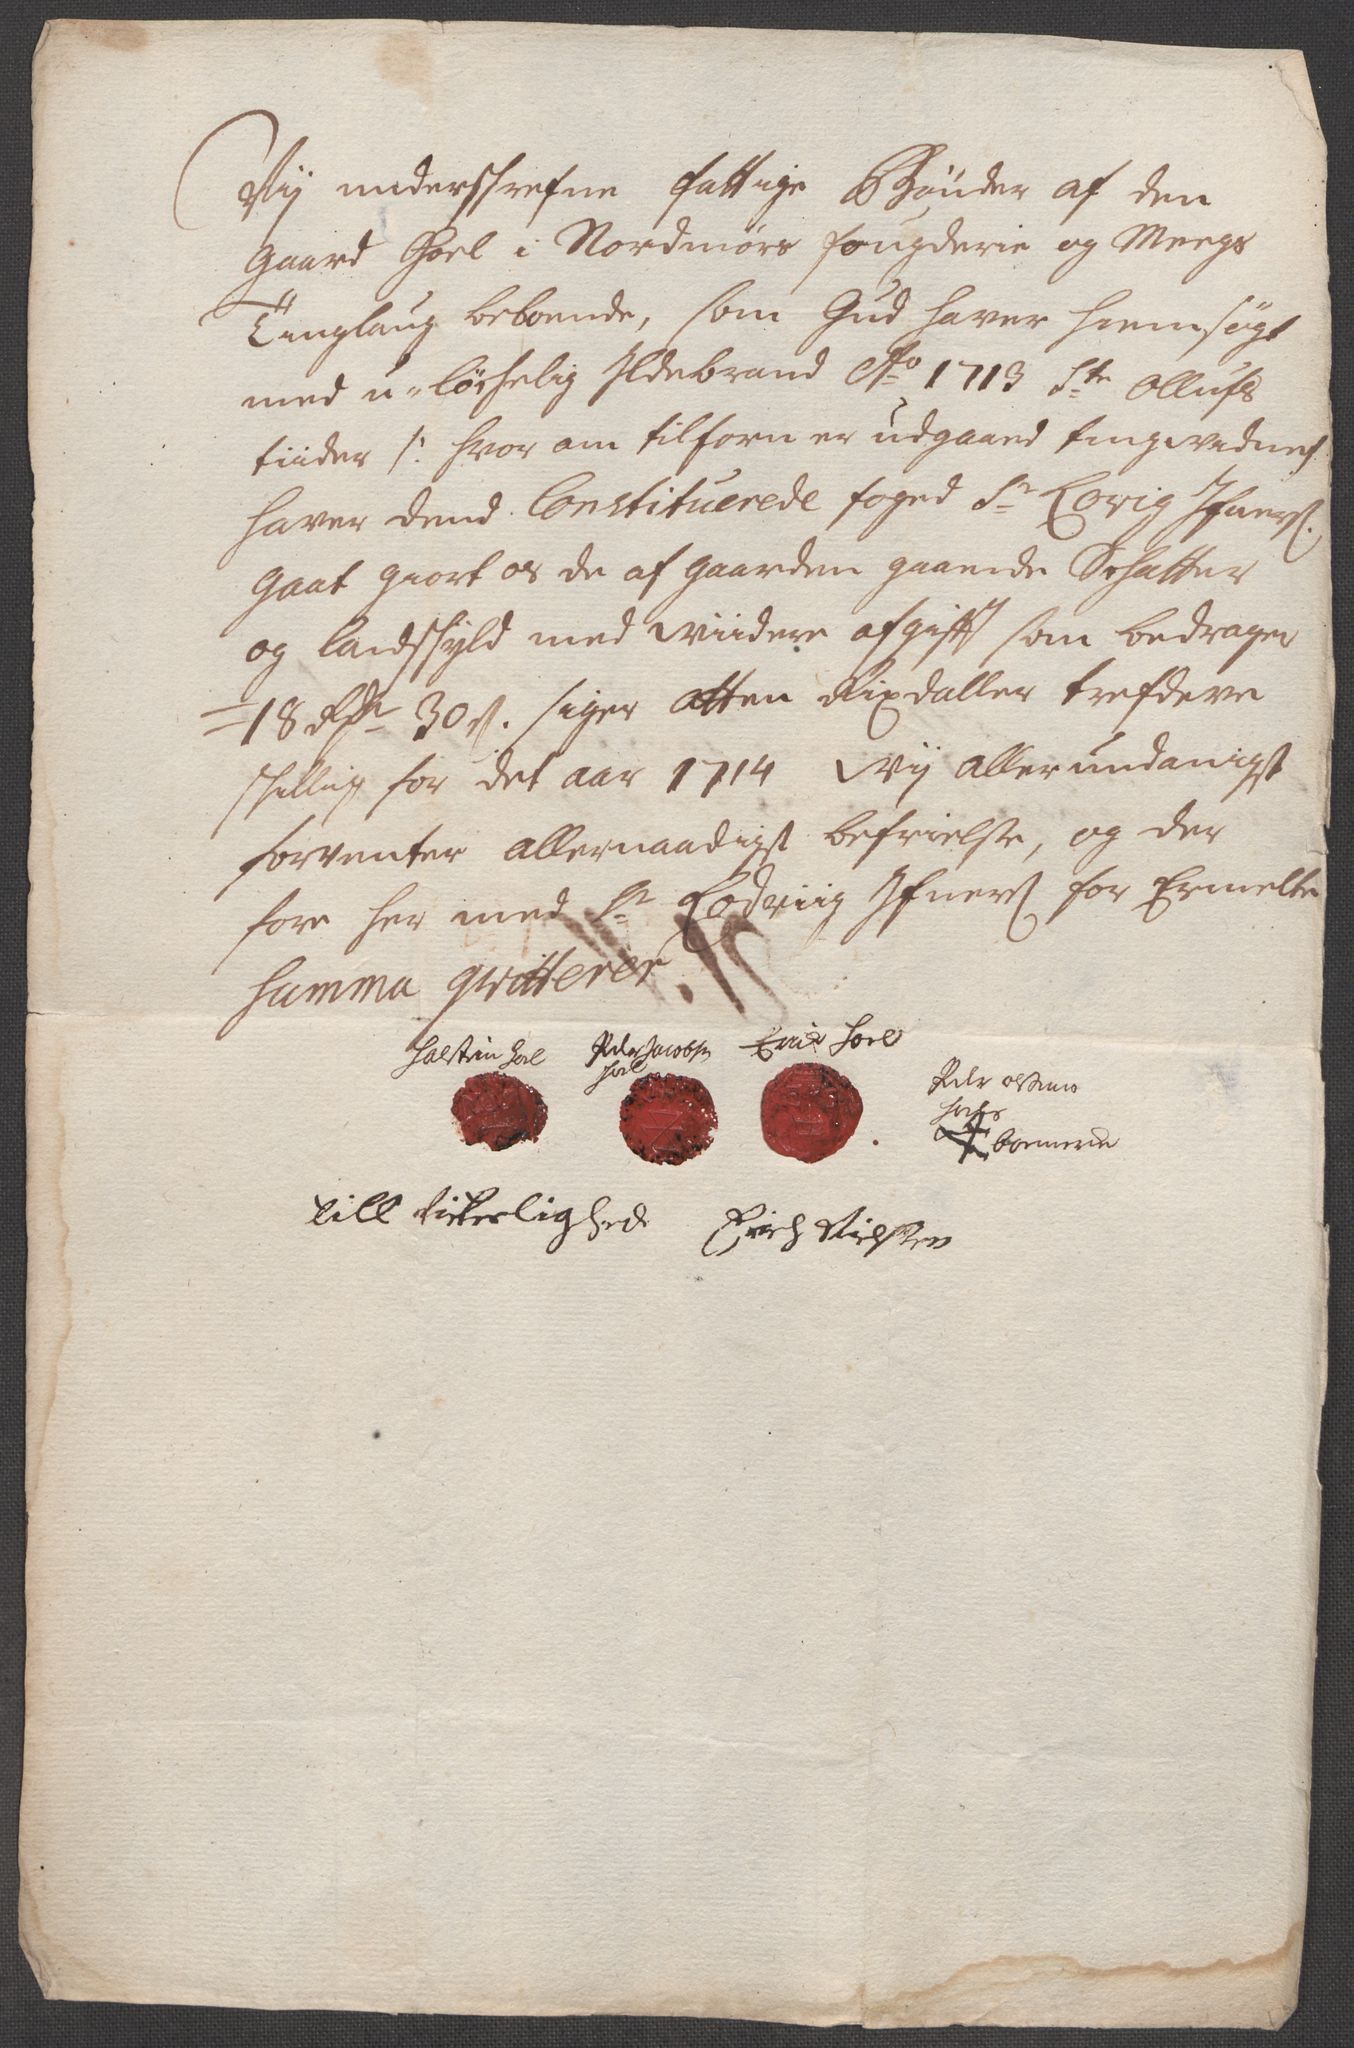 Wij underschrefne fattige Bønder af den
Gaard Hoel i Nordmørs fougderie og Meegs
Tinglaug beboende, som Gud haver hiemsøgt
med u-løchelig Ildebrand Ao 1713 Ste Ollufs
tiider /: hvor om tilforn er udgaaed tingsvidne/
haver dend Constituerede foged Sr
Gaat giort os de af gaarden gaaende Schatter
og landskyld med viidere afgift som bedrager
18 Rdr 30 s. siger atten Rixdaller trefdeve
skilling for det aar 1714 Wij allerundanigst
forventer allernaadigst befrielse, og der
fore her med Sr Lodviig for Ermelte
Summa qvitterer
Halsten Hoel Peder Jacobsen Hoel Erich Hoel
Peder
boemercke
till vitterlighed Erich Nielssen